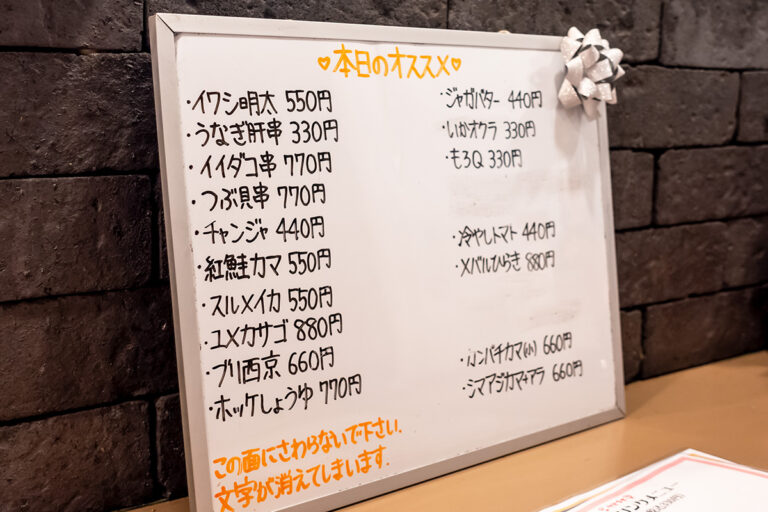 ♡本日のオススメ♡
・イワシ明太 550円
・うなぎ肝串 330円
・イイダコ串 770円
・つぶ貝串 770円
・チャンジャ 440円
・紅鮭カマ 550円
・スルメイカ 550円
・ユメカサゴ 880円
・ブリ西京 660円
・ホッケしょうゆ 770円
・ジャガバター 440円
・いかオクラ 330円
・もろQ 330円
・冷やしトマト 440円
・メバルひらき 880円
・カンパチカマ(小) 660円
・シマアジカマ+アラ 660円
この面にさわらないで下さい.
文字が消えてしまいます.
リンクメニュー